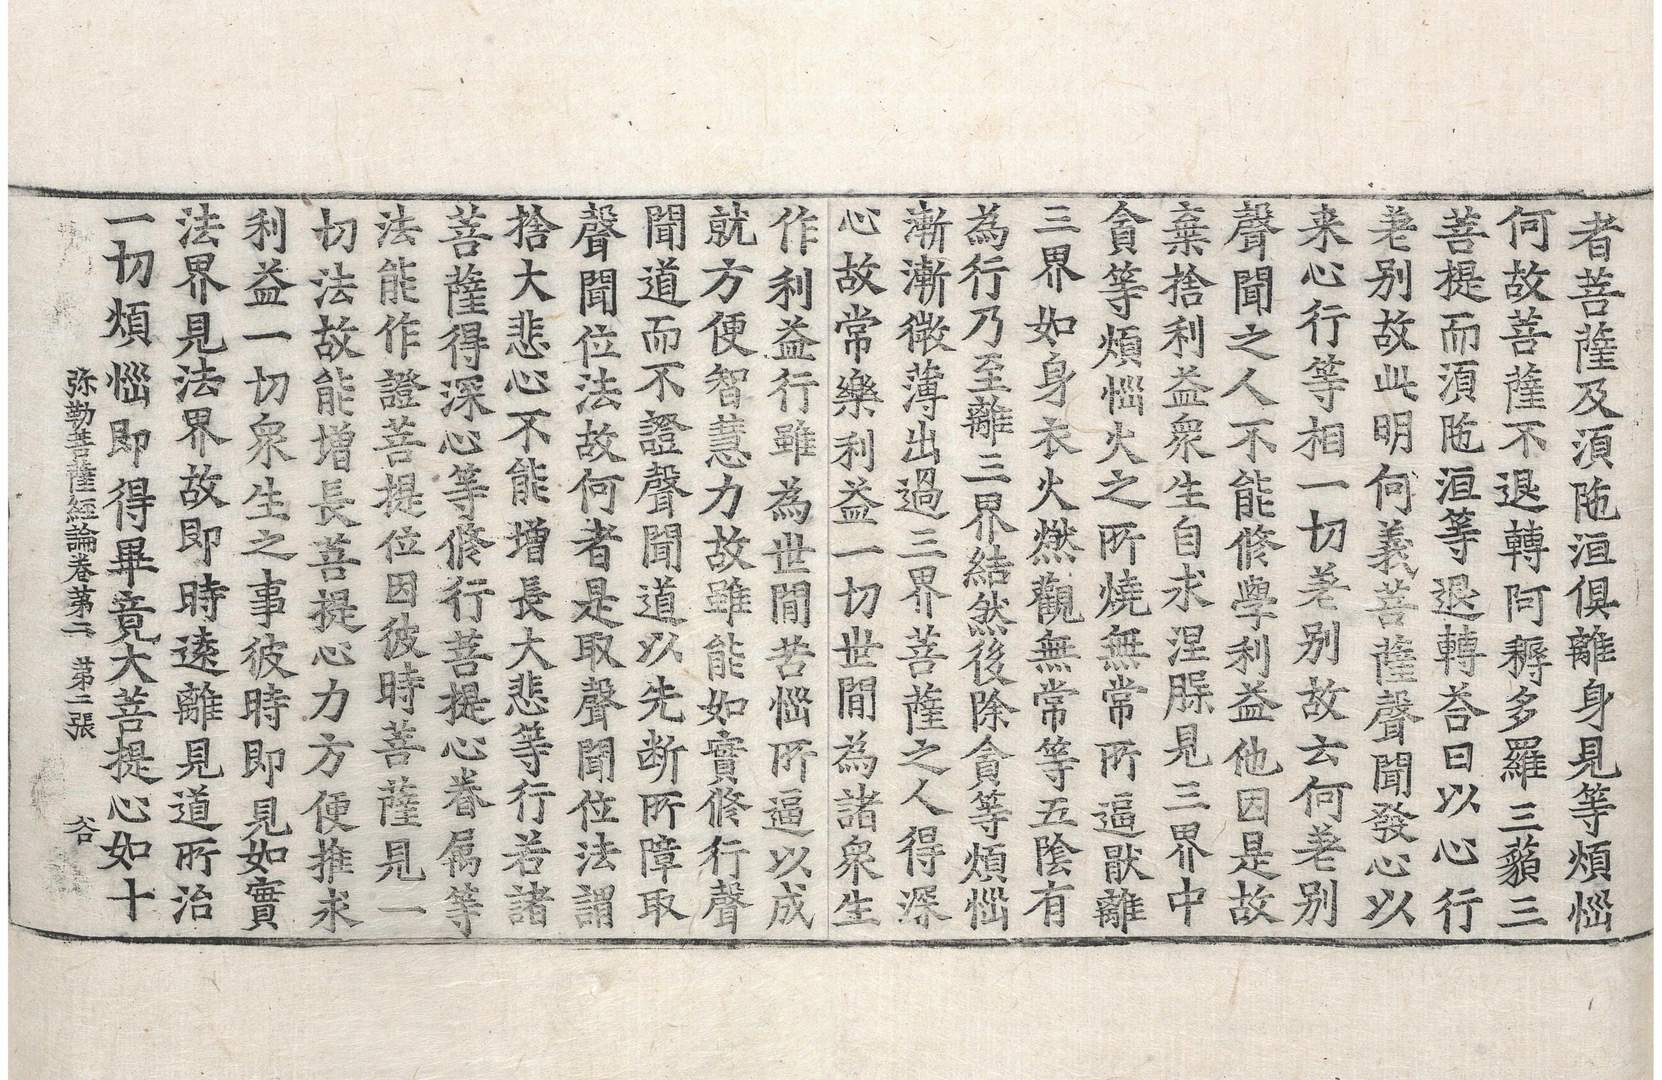 者菩薩及湏陁洹俱離身見等煩惱
何故菩薩不退轉阿耨多羅三藐三
菩提而湏陁洹等退轉荅曰以心行
差别故此明何義菩薩聲聞發心以
来心行等相一切差别故云何差别
聲聞之人不能修學利益他因是故
棄捨利益衆生自求涅槃見三界中
貪等煩惱火之所燒無常所逼猒離
三界如身衣火燃觀無常等五陰有
為行乃至離三界結然後除貪等煩惱
漸漸微薄出過三界菩薩之人得深
心故常樂利益一切世間為諸衆生
作利益行雖為世間苦惱所逼以成
就方便智慧力故雖能如實修行聲
聞道而不證聲聞道以先断所障取
聲聞位法故何者是取聲聞位法謂
捨大悲心不能增長大悲等行若諸
菩薩得深心等修行菩提心眷属等
法能作證菩提位因彼時菩薩見一
切法故能增長菩提心力方便推求
利益一切衆生之事彼時即見如實
法界見法界故即時遠離見道所治
一切煩惱即得畢竟大菩提心如十
弥勒菩薩經論卷第二 第二張